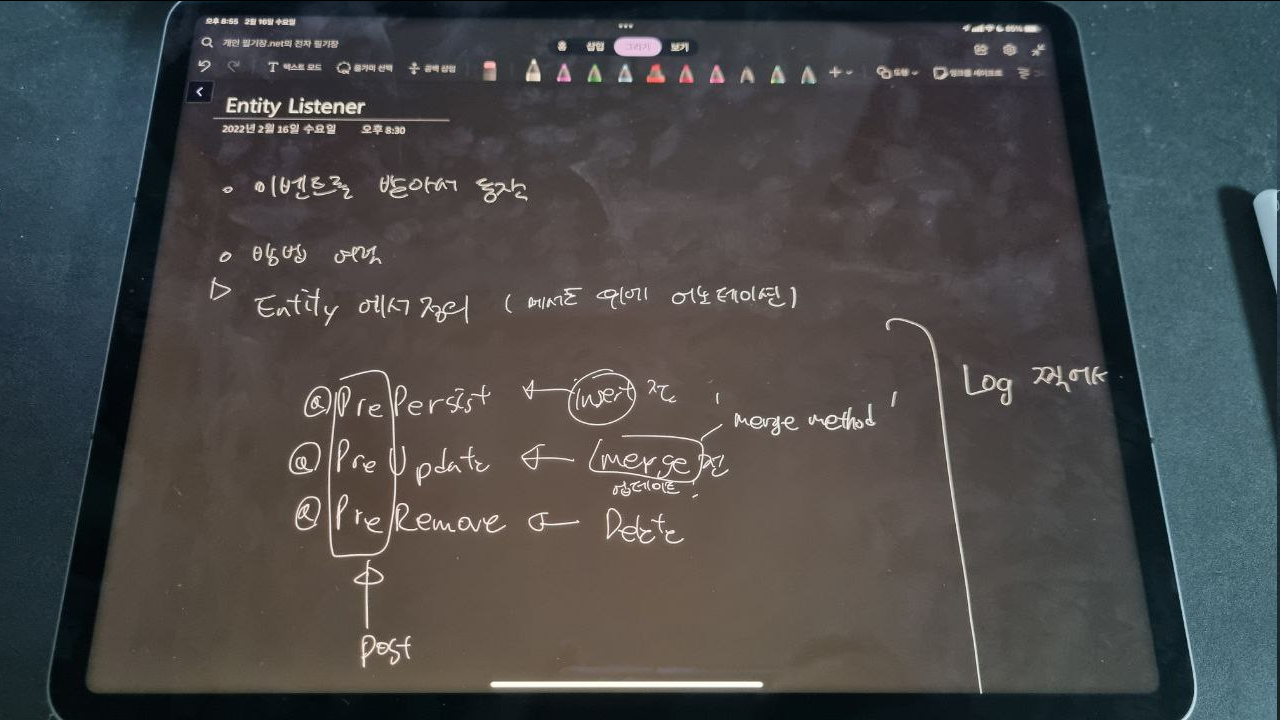 오후 8:55 2월 16일 수요일
85%
개인 필기장.net의 전자 필기장
홈 삽입 그리기 보기
텍스트 모드 올가미 선택 공백 삽입 도형
Entity Listener
2022년 2월 16일 수요일 오후 8:30
이벤트를 받아서 동작
방법 여럿
Entity 에서 정의 (메서드 위에 어노테이션)
Log 찍어서
@PrePersist ← insert 전
merge method
@PreUpdate ← merge 전
업데이트
@PreRemove ← Delete
Post